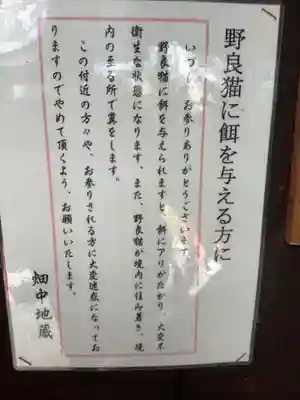 野良猫に餌を与える方に
いつも、お参りありがとうございます。
野良猫に餌を与えられますと、餌にアリがたかり、大変不
衛生な状態になります。また、野良猫が境内に住み着き、境
内の至る所で糞をします。
この付近の方々や、お参りされる方に大変迷惑になってお
りますのでやめて頂くよう、お願いいたします。
畑中 地蔵